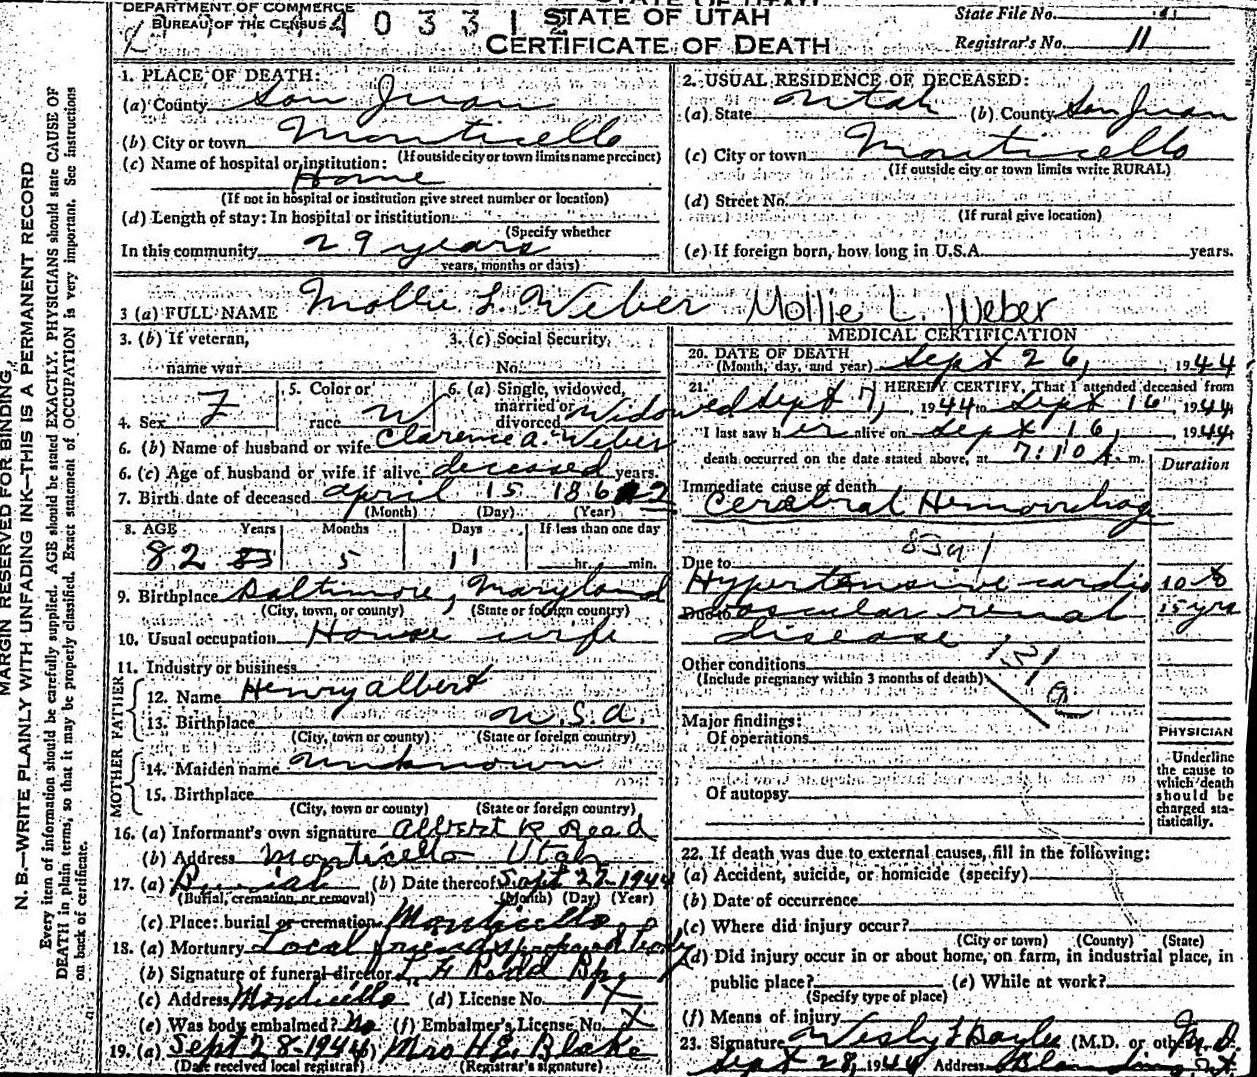 DEPARTMENT OF COMMERCE
BUREAU OF THE CENSUS
4 0 3 3 1 2
STATE OF UTAH
CERTIFICATE OF DEATH
State File No.
Registrar's No. 11
MARGIN RESERVED FOR BINDING,
N. B.—WRITE PLAINLY WITH UNFADING INK—THIS IS A PERMANENT RECORD
Every item of information should be carefully supplied. AGE should be stated EXACTLY. PHYSICIANS should state CAUSE OF
DEATH in plain terms, so that it may be properly classified. Exact statement of OCCUPATION is very important. See instructions
on back of certificate.
1. PLACE OF DEATH:
(a) County San Juan
(b) City or town Monticello
(If outside city or town limits name precinct)
(c) Name of hospital or institution:
Home
(If not in hospital or institution give street number or location)
(d) Length of stay: In hospital or institution
(Specify whether
In this community 29 years
years, months or days)
2. USUAL RESIDENCE OF DECEASED:
(a) State Utah (b) County San Juan
(c) City or town Monticello
(If outside city or town limits write RURAL)
(d) Street No.
(If rural give location)
(e) If foreign born, how long in U.S.A. years.
3 (a) FULL NAME Mollie L. Weber Mollie L. Weber
3. (b) If veteran,
name war
3. (c) Social Security
No.
4. Sex F
5. Color or
race W
6. (a) Single, widowed,
married or
divorced Widowed
6. (b) Name of husband or wife Clarence A. Weber
6. (c) Age of husband or wife if alive deceased years.
7. Birth date of deceased April 15 1862
(Month) (Day) (Year)
8. AGE Years Months Days If less than one day
82 83 5 11 hr. min.
9. Birthplace Baltimore, Maryland
(City, town, or county) (State or foreign country)
10. Usual occupation House wife
11. Industry or business
FATHER
12. Name Henry Albert
13. Birthplace U.S.A.
(City, town or county) (State or foreign country)
MOTHER
14. Maiden name unknown
15. Birthplace
(City, town or county) (State or foreign country)
16. (a) Informant's own signature Albert R Read
(b) Address Monticello Utah
17. (a) Burial (b) Date thereof Sept 27-1944
(Burial, cremation, or removal) (Month) (Day) (Year)
(c) Place: burial or cremation Monticello
18. (a) Mortuary Local friends prepared body
(b) Signature of funeral director
(c) Address Monticello (d) License No. X
(e) Was body embalmed? No (f) Embalmer's License No. X
19. (a) Sept 28-1944 Mrs H.E. Blake
(Date received local registrar) (Registrar's signature)
MEDICAL CERTIFICATION
20. DATE OF DEATH
(Month, day, and year) Sept 26, 1944
21. I HEREBY CERTIFY, That I attended deceased from
Sept 7, 1944 to Sept 16 1944
I last saw her alive on Sept 16, 1944
death occurred on the date stated above, at 7:10 A. m.
Duration
Immediate cause of death
Cerebral Hemorrhage
Due to
Hypertensive cardio 10 to
Due to vascular renal 15 yrs
disease
Other conditions
(Include pregnancy within 3 months of death)
Major findings:
Of operations
Of autopsy
PHYSICIAN
Underline
the cause to
which death
should be
charged sta-
tistically.
22. If death was due to external causes, fill in the following:
(a) Accident, suicide, or homicide (specify)
(b) Date of occurrence
(c) Where did injury occur?
(City or town) (County) (State)
(d) Did injury occur in or about home, on farm, in industrial place, in
public place? (e) While at work?
(Specify type of place)
(f) Means of injury
23. Signature (M.D. or other) M.D.
Sept 28, 1944 Address Blanding, Ut.